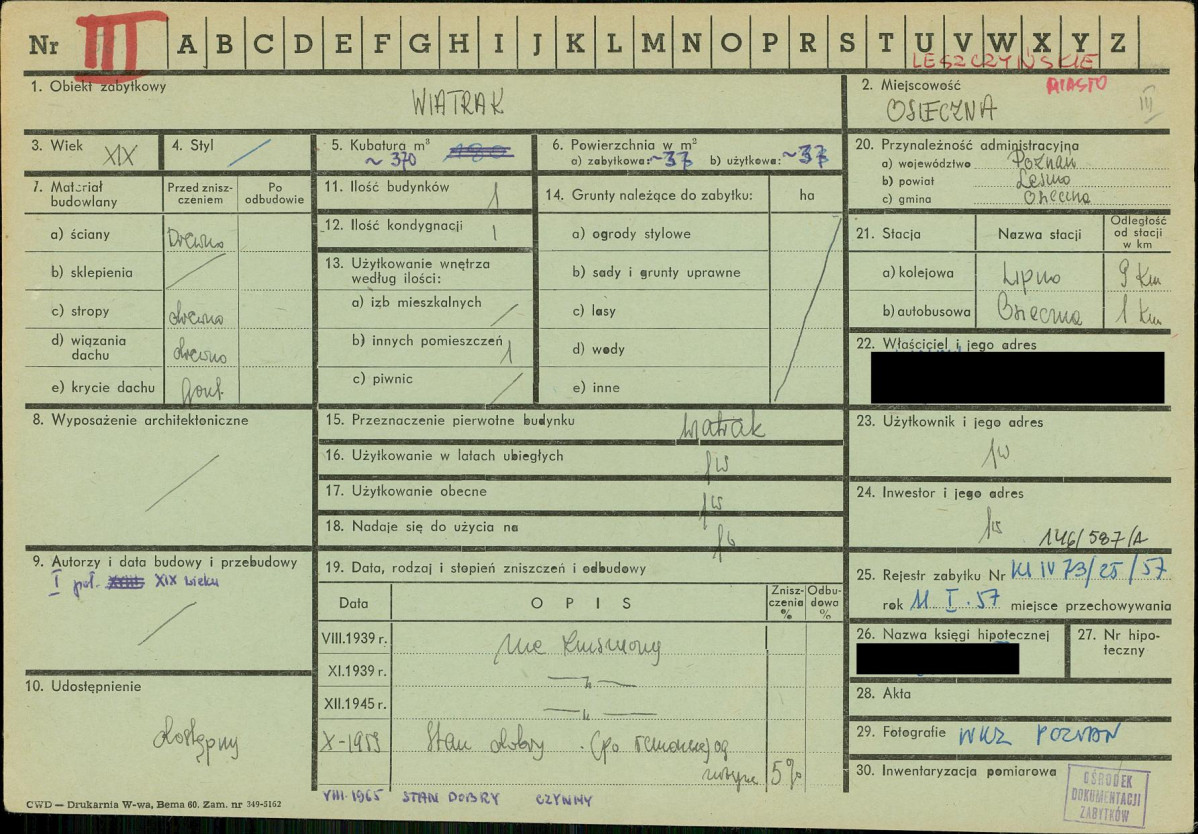 Nr III A B C D E F G H I J K L M N O P R S T U V W X Y Z
LESZCZYŃSKIE
MIASTO
III
1. Obiekt zabytkowy
WIATRAK
2. Miejscowość
OSIECZNA
3. Wiek XIX
4. Styl
5. Kubatura m³
~ 370
6. Powierzchnia w m²
a) zabytkowa: ~37 b) użytkowa: ~37
7. Materiał budowlany
Przed zniszczeniem
Po odbudowie
a) ściany Drewno
b) sklepienia
c) stropy drewno
d) wiązania dachu drewno
e) krycie dachu gont
8. Wyposażenie architektoniczne
9. Autorzy i data budowy i przebudowy
I poł. XIX wieku
10. Udostępnienie
dostępny
11. Ilość budynków 1
12. Ilość kondygnacji 1
13. Użytkowanie wnętrza według ilości:
a) izb mieszkalnych
b) innych pomieszczeń 1
c) piwnic
14. Grunty należące do zabytku: ha
a) ogrody stylowe
b) sady i grunty uprawne
c) lasy
d) wody
e) inne
15. Przeznaczenie pierwotne budynku wiatrak
16. Użytkowanie w latach ubiegłych jw
17. Użytkowanie obecne jw
18. Nadaje się do użycia na jw
19. Data, rodzaj i stopień zniszczeń i odbudowy
Data
OPIS
Zniszczenia %
Odbudowa %
VIII.1939 r.
XI.1939 r. —"—
XII.1945 r. —"—
X-1959 Stan dobry (po remoncie)
5%
VIII.1965 STAN DOBRY CZYNNY
20. Przynależność administracyjna
a) województwo Poznań
b) powiat Leszno
c) gmina Osieczna
21. Stacja
Nazwa stacji
Odległość od stacji w km
a) kolejowa Lipno 9 km
b) autobusowa Osieczna 1 km
22. Właściciel i jego adres
23. Użytkownik i jego adres
jw
24. Inwestor i jego adres
jw
146/587/A
25. Rejestr zabytku Nr KL IV 73/25/57
rok 11 I. 57 miejsce przechowywania
26. Nazwa księgi hipotecznej
27. Nr hipoteczny
28. Akta
29. Fotografie WKZ POZNAŃ
30. Inwentaryzacja pomiarowa
OŚRODEK
DOKUMENTACJI
ZABYTKÓW
CWD — Drukarnia W-wa, Bema 60. Zam. nr 349-5162